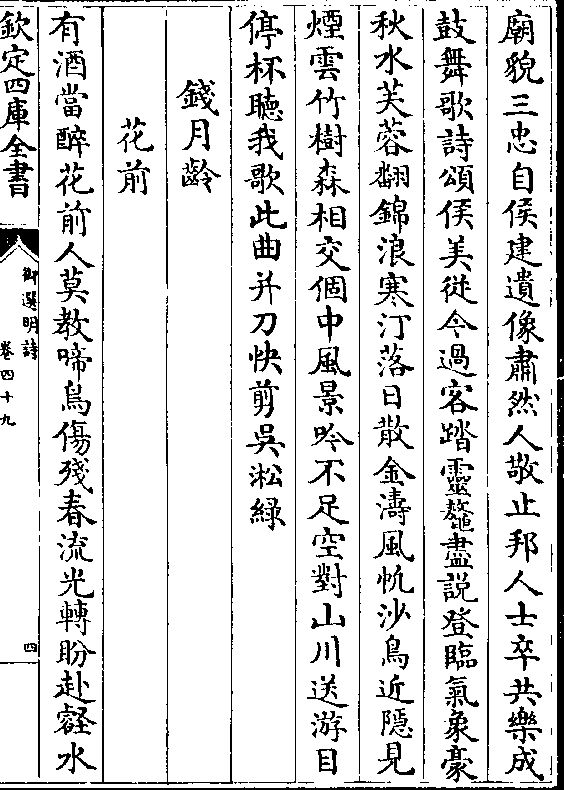 廟貌三忠自侯建遺像肅然人敬止邦人士卒共樂成
鼓舞歌詩頌侯美從今過客踏靈鼇盡説登臨氣象豪
秋水芙蓉翻錦浪寒汀落日散金濤風帆沙鳥近隱見
煙雲竹樹森相交個中風景吟不足空對山川送游目
停杯聽我歌此曲并刀快剪吳淞緑
錢月齡
花前
有酒當醉花前人莫教啼鳥傷殘春流光轉盼赴壑水
欽定四庫全書
御選明詩
卷四十九
四